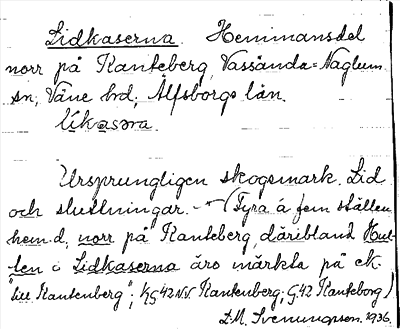 Lidkaserna. Hemmansdel
norr på Kanteberg, Vassända=Naglum
sn, Väne hd, Älfsborgs län.
Ursprungligen skogsmark. Lid
och sluttningar. - (Fyra á fem ställen
hem.d. norr på Kanteberg, däribland Hul-
ten o Lidkaserna äro märkta på ek.
"till Kantenberg"; KG42NV. Kantenberg; G.42 Kanteborg)
D.M. Svenungsson. 1936